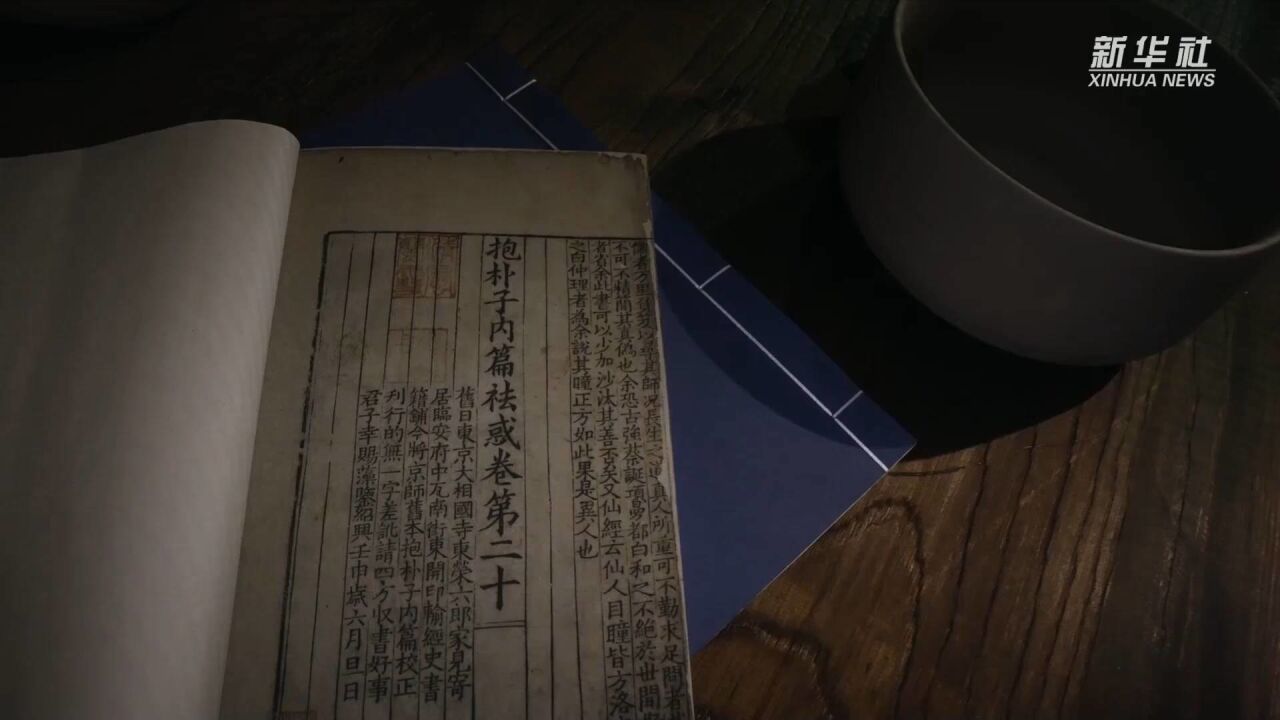 新华社
XINHUA NEWS
不可不精簡其真偽也余恐古強蔡誕項曼都白和之不絶於世間
者省余此書可以少加沙汰其善否矣又仙經云仙人目瞳皆方洛
之白仲理者為余說其瞳正方如此果是異人也
抱朴子内篇祛惑卷第二十
舊日東京大相國寺東榮六郎家見寄
居臨安府中瓦南街東開印輸經史書
籍鋪今將京師舊本抱朴子内篇校正
刋行的無一字差訛請四方收書好事
君子幸賜藻鑒紹興壬申歲六月旦日